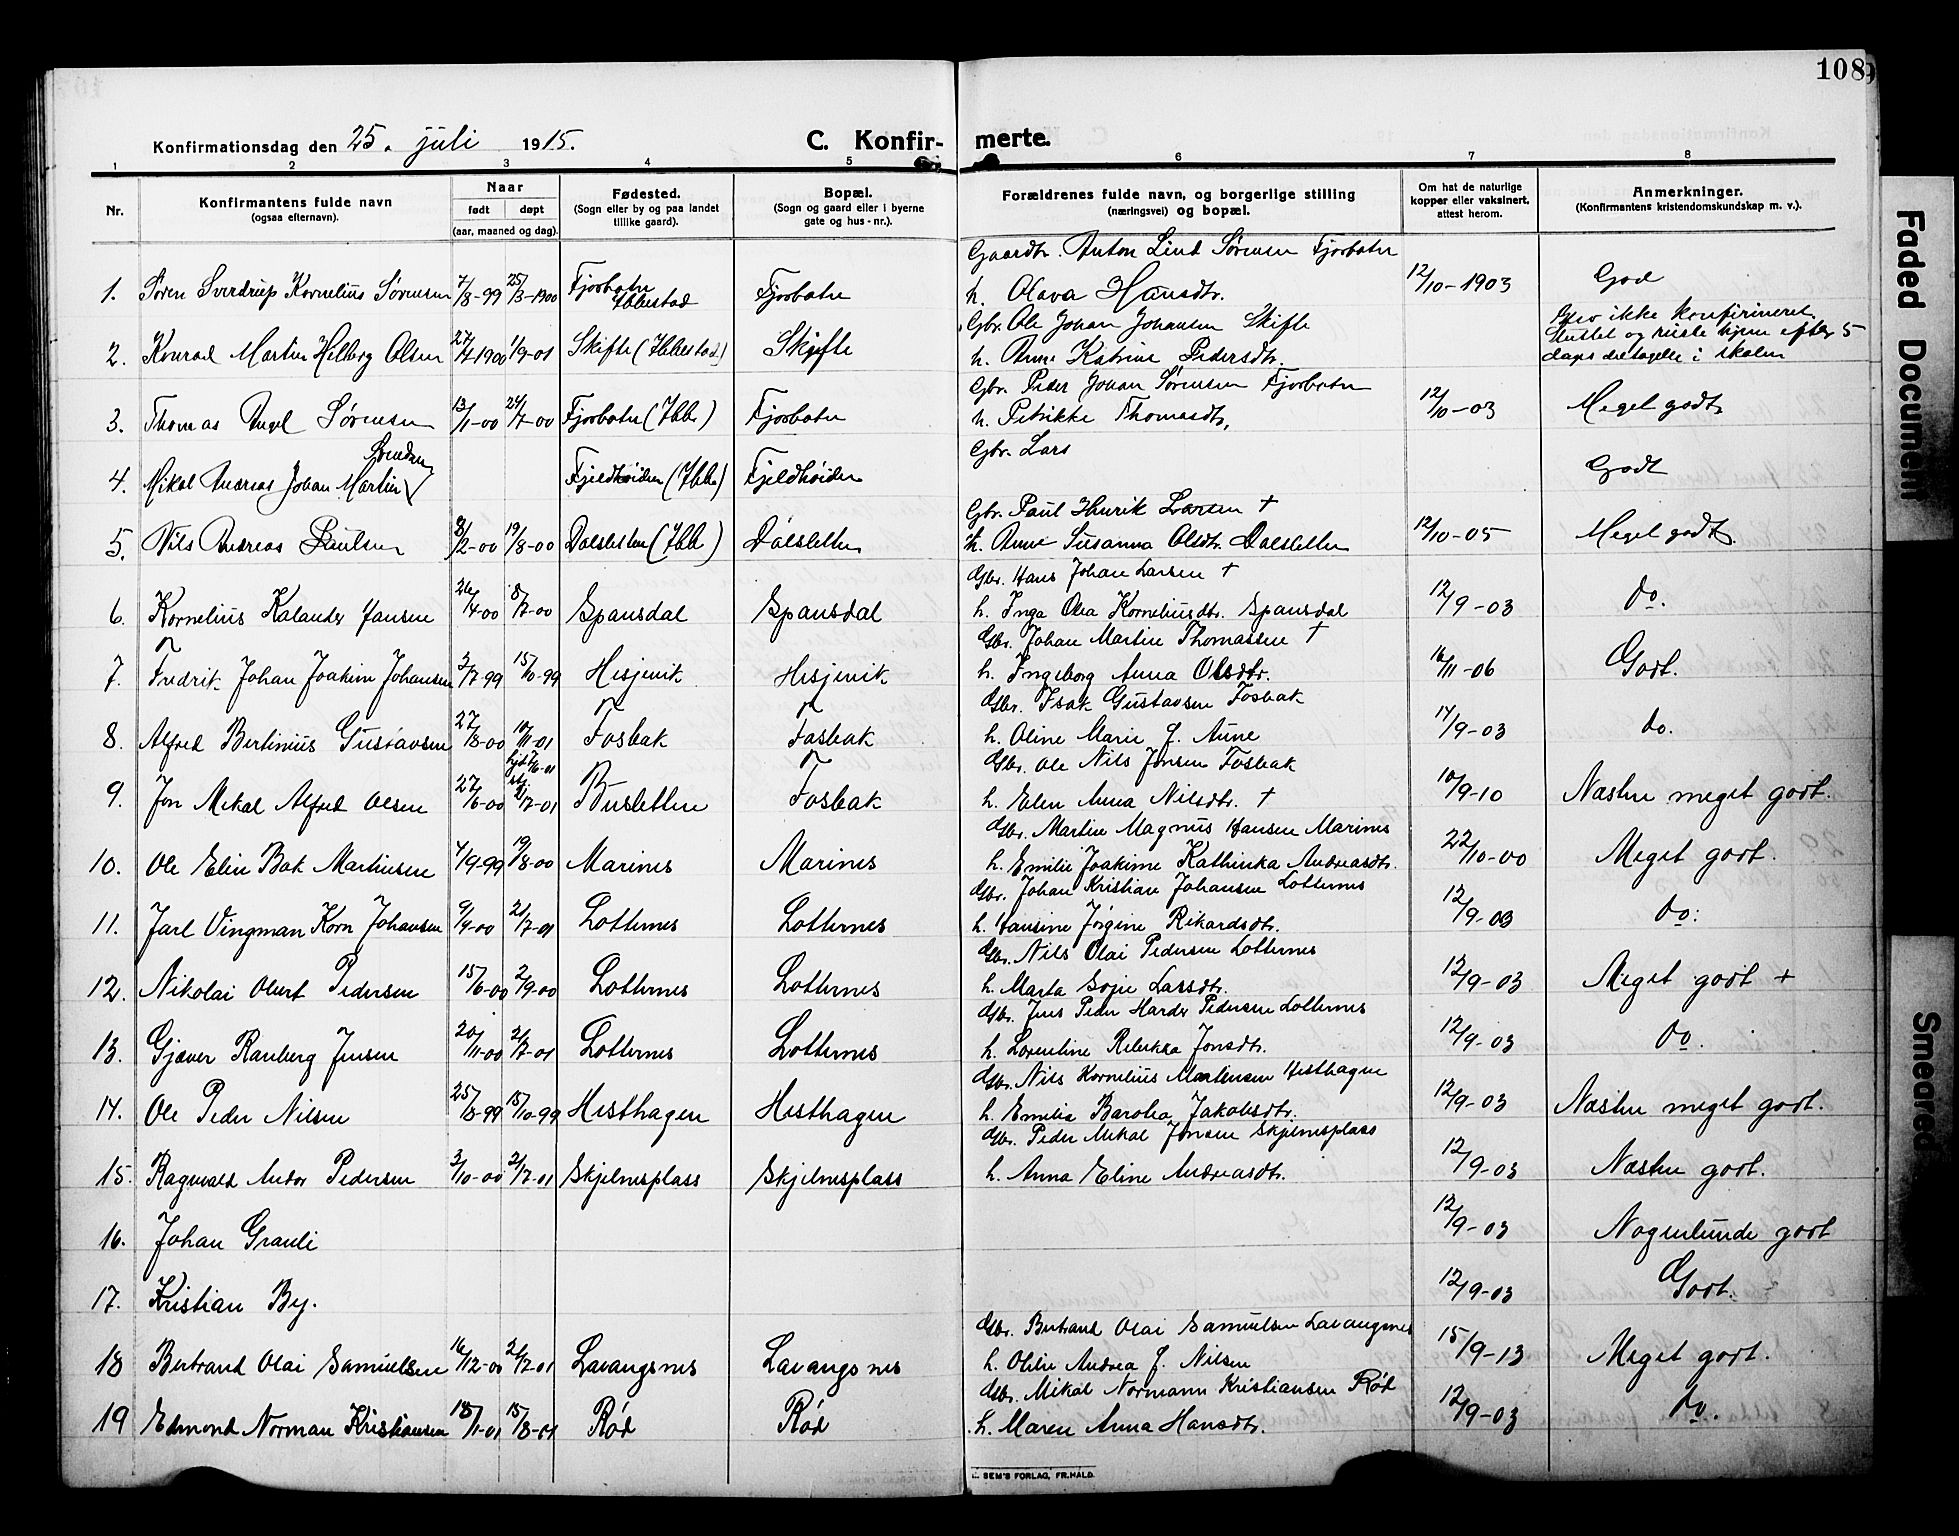 108
Konfirmationsdag den 25. juli 1915. C. Konfirmerte.
1 2 3 4 5 6 7 8
Nr. Konfirmantens fulde navn (ogsaa efternavn). Naar født døpt (aar, maaned og dag). Fødested. (Sogn eller by og paa landet tillike gaard). Bopæl. (Sogn og gaard eller i byerne gate og hus-nr.). Forældrenes fulde navn, og borgerlige stilling (næringsvei) og bopæl. Om hat de naturlige kopper eller vaksinert, attest herom. Anmerkninger. (Konfirmantens kristendomskundskap m. v.).
Gaardbr. Anton Lind Sørensen Fjorbotn
1. Søren Sverdrup Kornelius Sørensen 7/8-99 25/3-1900 Fjorbotn Ibbestad Fjorbotn h. Olava Hansdtr. 12/10-1903 God
Gbr. Ole Johan Johansen Skifte Blev ikke konfirmeret.
Sluttet og reiste hjem efter 5
2. Konrad Martin Helberg Olsen 27/4-1900 1/9-01 Skifte (Ibbestad) Skifte h. Anne Katrine Pedersdtr. dags deltagelse i skolen
Gbr. Peder Johan Sørensen Fjorbotn
3. Thomas Angel Sørensen 13/1-00 24/7-00 Fjorbotn (Ibb.) Fjorbotn h. Petrikke Thomasdtr. 12/10-03 Meget godt
Gbr. Lars
4. Mikal Andreas Johan Martin Svendsen Fjeldhøiden (Ibb.) Fjeldhøiden Godt
Gbr. Paul Henrik Larsen †
5. Nils Andreas Paulsen 8/2-00 19/8-00 Dalsletten (Ibb) Dalsletten h. Anne Susanna Olsdtr. Dalsletten 12/10-05 Meget godt.
Gbr. Hans Johan Larsen †
6. Kornelius Kalander Hansen 26/4-00 8/7-00 Spansdal Spansdal h. Inga Olea Korneliusdtr. Spansdal 12/9-03 do.
Gbr. Johan Martin Thomassen †
7. Fredrik Johan Joakim Johansen 3/7-99 15/10-99 Hesjevik Hesjevik h. Ingeborg Anna Olsdtr. 16/11-06 Godt.
Gbr. Isak Gustavsen Fosbak
8. Alfred Bertinius Gustavsen 27/8-00 10/11-01 Fosbak Fosbak h. Oline Marie J. Aune 14/9-03 do.
Gbr. Ole Nils Jensen Fosbak
9. Jon Mekal Alfred Olsen 27/6-00 21/7-01 Busletten Fosbak h. Elen Anna Nilsdtr. † 10/9-10 Næsten meget godt.
Gbr. Martin Magnus Hansen Marines
10. Ole Elin Bak Martinsen 4/9-99 19/8-00 Marines Marines h. Emilie Joakime Kathinka Andreasdtr. 22/10-00 Meget godt.
Gbr. Johan Kristian Johansen Lotternes
11. Jarl Vingman Korn Johansen 9/9-00 21/7-01 Lotternes Lotternes h. Hansine Jørgine Rikardsdtr. 12/9-03 do:
Gbr. Nils Olai Pedersen Lotternes
12. Nikolai Olurt Pedersen 15/6-00 2/9-00 Lotternes Lotternes h. Marta Sofie Larsdtr. 12/9-03 Meget godt +
Gbr. Jens Peder Harder Pedersen Lotternes
13. Gjæver Ranberg Jensen 20/11-00 21/7-01 Lotternes Lotternes h. Lorentine Rebekka Jonsdtr. 12/9-03 do.
Gbr. Nils Kornelius Mortensen Hesthagen
14. Ole Peder Nilsen 25/8-99 15/10-99 Hesthagen Hesthagen h. Emilia Baroka Jakobsdtr. 12/9-03 Næsten meget godt.
Gbr. Peder Mekal Jensen Skjelnesplass
15. Ragnvald Andor Pedersen 3/10-00 21/7-01 Skjelnesplass Skjelnesplass h. Anna Eline Andreasdtr. 12/9-03 Næsten godt.
16. Johan Granli 12/9-03 Nogenlunde godt
17. Kristian By. 12/9-03 Godt.
Gbr. Bertrand Olai Samuelsen Lavangsnes
18 Bertrand Olai Samuelsen 16/12-00 21/7-01 Lavangsnes Lavangsnes h. Oline Andrea J. Nilsen 15/9-13 Meget godt.
Gbr. Mikal Normann Kristiansen Rød
19 Edmond Norman Kristiansen 18/1-01 15/8-01 Rød Rød h. Maren Anna Hansdtr. 12/9-03 do.
SEM'S FORLAG, FR.HALD.
Faded Document
Smeared